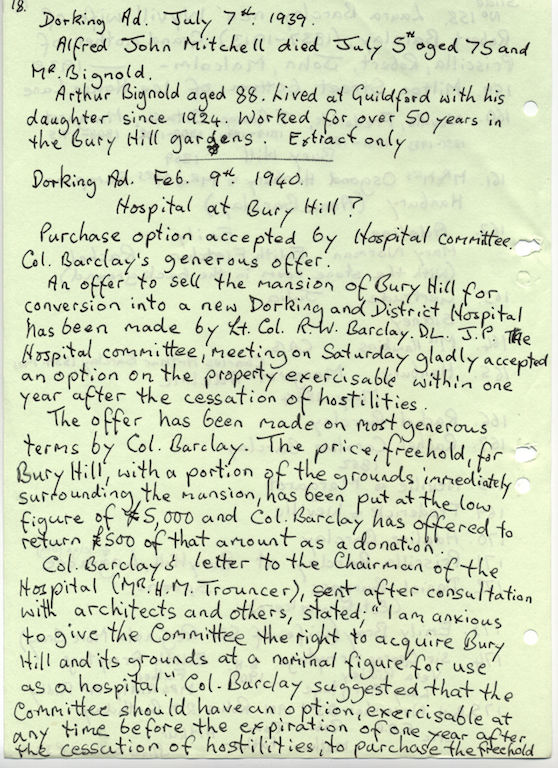 18.
Dorking Ad. July 7th. 1939.
Alfred John Mitchell died July 5th aged 75 and
Mr. Bignold.
Arthur Bignold aged 88. Lived at Guildford with his
daughter since 1924. Worked for over 50 years in
the Bury Hill gardens. Extract only
Dorking Ad. Feb. 9th. 1940.
Hospital at Bury Hill?
Purchase option accepted by Hospital committee.
Col. Barclay's generous offer.
An offer to sell the mansion of Bury Hill for
conversion into a new Dorking and District Hospital
has been made by Lt. Col. R.W. Barclay. DL. J.P. The
Hospital committee, meeting on Saturday gladly accepted
an option on the property exercisable within one
year after the cessation of hostilities.
The offer has been made on most generous
terms by Col. Barclay. The price, freehold, for
Bury Hill, with a portion of the grounds immediately
surrounding the mansion, has been put at the low
figure of £5,000 and Col. Barclay has offered to
return £500 of that amount as a donation.
Col. Barclay's letter to the Chairman of the
Hospital (Mr. H.M. Trouncer), sent after consultation
with architects and others, stated: "I am anxious
to give the Committee the right to acquire Bury
Hill and its grounds at a nominal figure for use
as a hospital." Col. Barclay suggested that the
Committee should have an option, exercisable at
any time before the expiration of one year after
the cessation of hostilities, to purchase the freehold